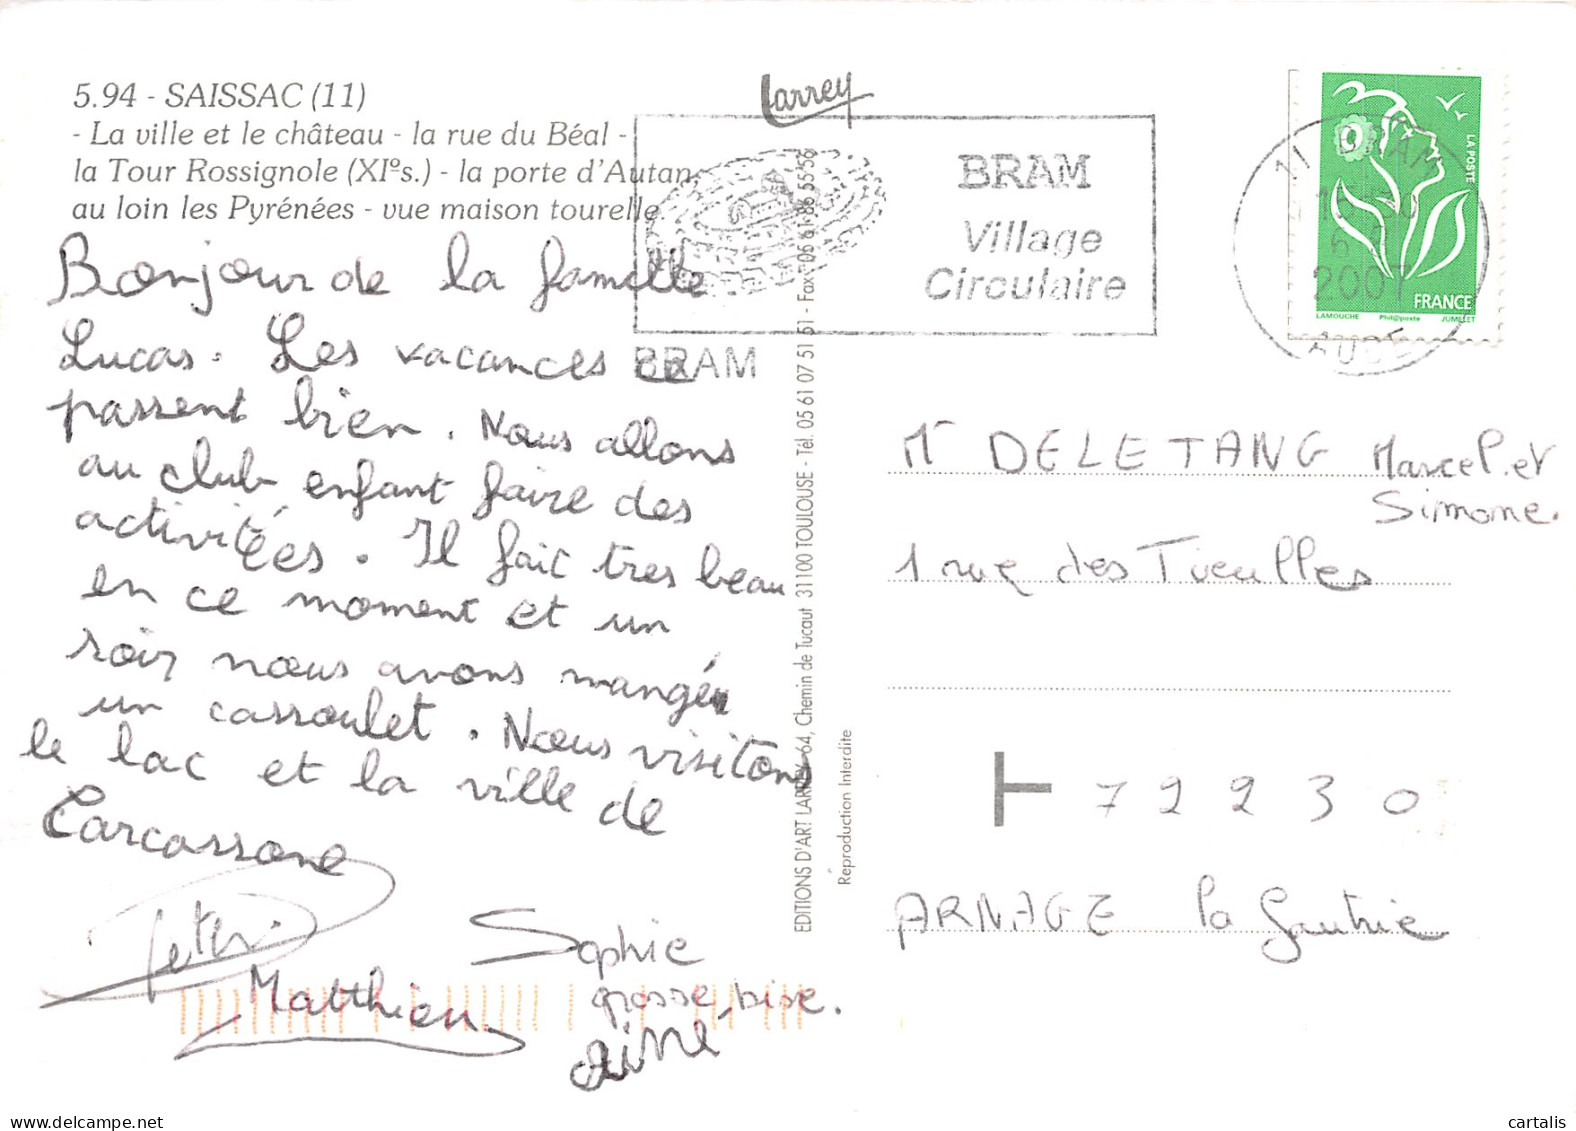 5.94 - SAISSAC (11)
- La ville et le château - la rue du Béal -
la Tour Rossignole (XIes.) - la porte d'Autan
au loin les Pyrénées - vue maison tourelle.
Bonjour de la famille
Lucas. Les vacances ce
passent bien. Nous allons
au club enfant faire des
activitées. Il fait tres beau
en ce moment et un
soir nous avons mangé
un cassoulet. Nous visitons
le lac et la ville de
Carcassone
Matthieu
Sophie
grosse bise.
Larrey
BRAM
Village
Circulaire
BRAM
11 BRAM
2007
AUDE
LA POSTE
FRANCE
LAMOUCHE Phil@poste JUMELET
EDITIONS D'ART LARREY 64, Chemin de Tucaut 31100 TOULOUSE - Tél. 05 61 07 51 51 - Fax 05 61 86 55 56
Reproduction Interdite
Mr DELETANG Marcel et
Simone.
1 rue des Tieulles
72230
ARNAGE la Gautrie
cartalis